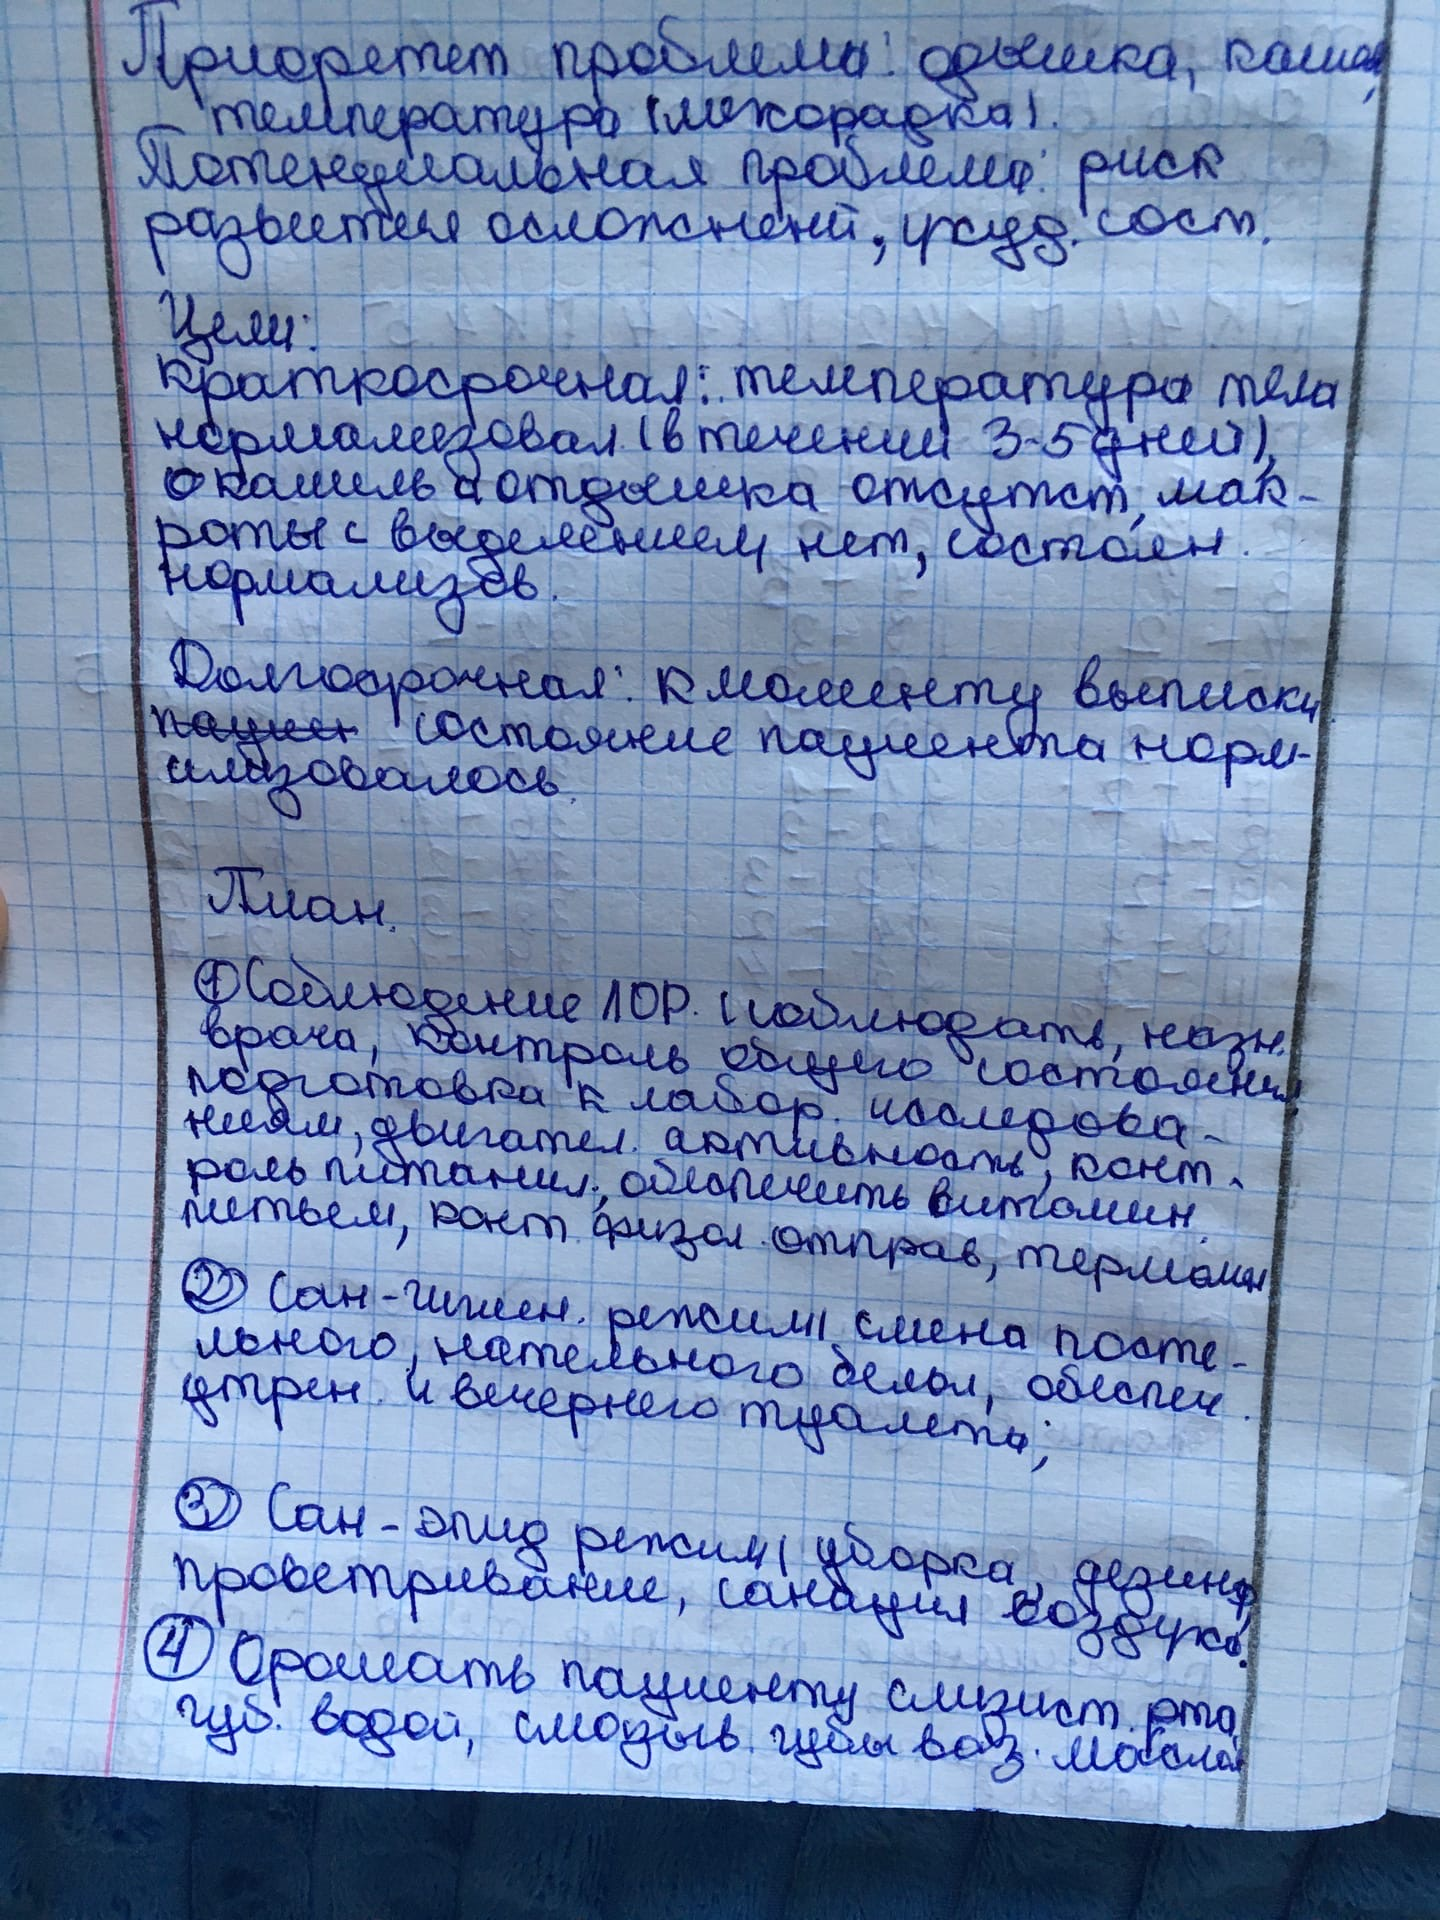 Приоретет проблема: одышка, кашель,
температура (лихорадка).
Потенциальная проблема: риск
развития осложнений, ухуд. сост.
Цели:
краткосрочная: температура тела
нормализовал (в течении 3-5 дней),
кашель отдышка отсутст, мак-
роты с выделением нет, состоян.
нормализов.
Долгосрочная: к моменту выписки
пациен состояние пациента норм-
ализовалось.
План.
① Соблюдение ЛОР. (соблюдать, назн.
врача, контроль общего состояния,
подготовка к лабор. исследова-
ниям, двигател. активность, конт-
роль питания, обеспечить витамин.
питьем, конт. физол. отправ, термомет
② Сан-гигиен. режим (смена посте-
льного, нательного белья, обеспеч.
утрен. и вечернего туалета;
③ Сан-эпид режим (уборка, дезинф,
проветривание, санация воздуха.
④ Орошать пациенту слизист. рта,
губ. водой, смазыв. губы ваз. масла